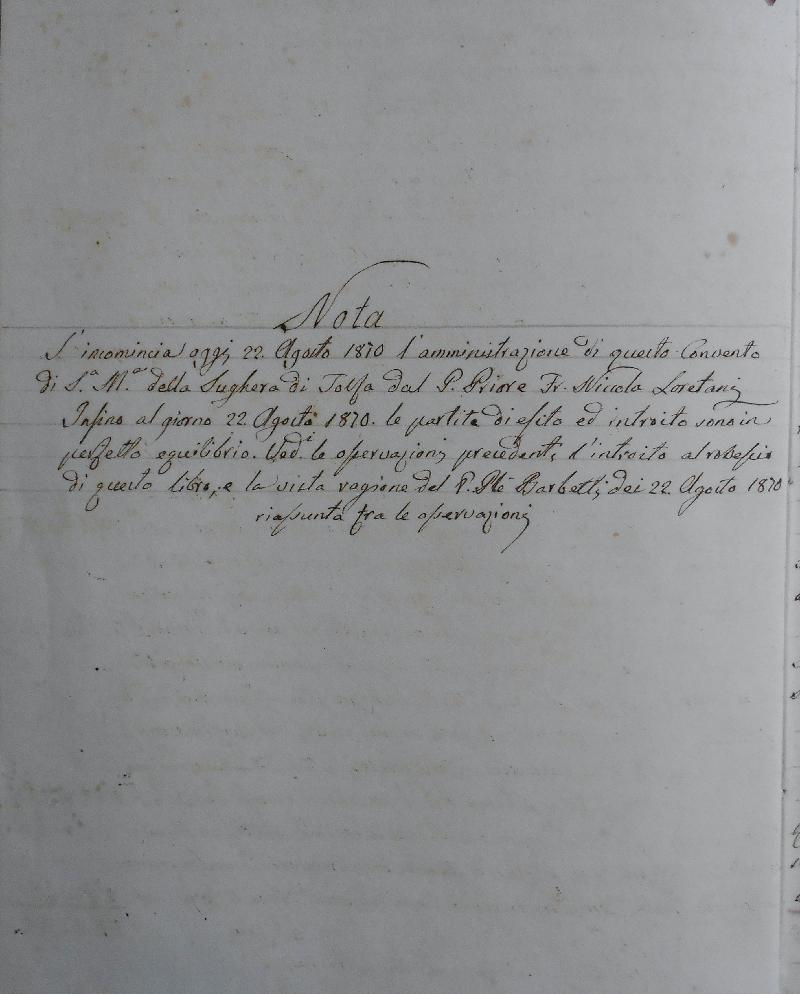 Nota
S'incomincia oggi 22. Agosto 1870 l'amministrazione di questo Convento
di S.a M.a della Sughera di Tolfa dal P. Priore Fr. Nicola Loretani
Insino al giorno 22. Agosto 1870. le partite di esito ed introito sono in
perfetto equilibrio. Ved.i le osservazioni precedenti, l'introito al rovescio
di questo libro, e la vista ragione del P. Barbetti dei 22. Agosto 1870
riassunta fra le osservazioni